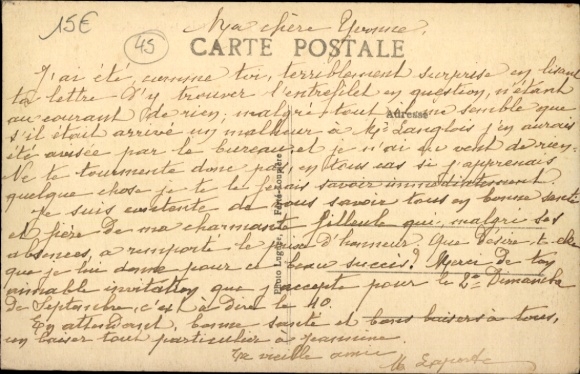 15€
45
Ma chère Yvonne,
CARTE POSTALE
J'ai été, comme toi, terriblement surprise en lisant
ta lettre d'y trouver l'entrefilet en question, n'étant
au courant de rien, malgré tout il me semble que
Adresse
s'il était arrivé un malheur à Mr Langlois j'en aurais
été avisée par le bureau et je n'ai eu vent de rien.
Ne te tourmente donc pas, en tous cas si j'apprenais
quelque chose je te le ferais savoir immédiatement.
Je suis contente de vous savoir tous en bonne santé
et fière de ma charmante filleule qui, malgré ses
absences, a remporté le prix d'honneur. Que désire-t-elle
que je lui donne pour ce beau succès? Merci de ton
aimable invitation que j'accepte pour le 2e Dimanche
de Septembre, c'est à dire le 10.
En attendant, bonne santé et bons baisers à tous,
un baiser tout particulier à Jeannine.
Ta vieille amie
M Laporte
Photo Legrand